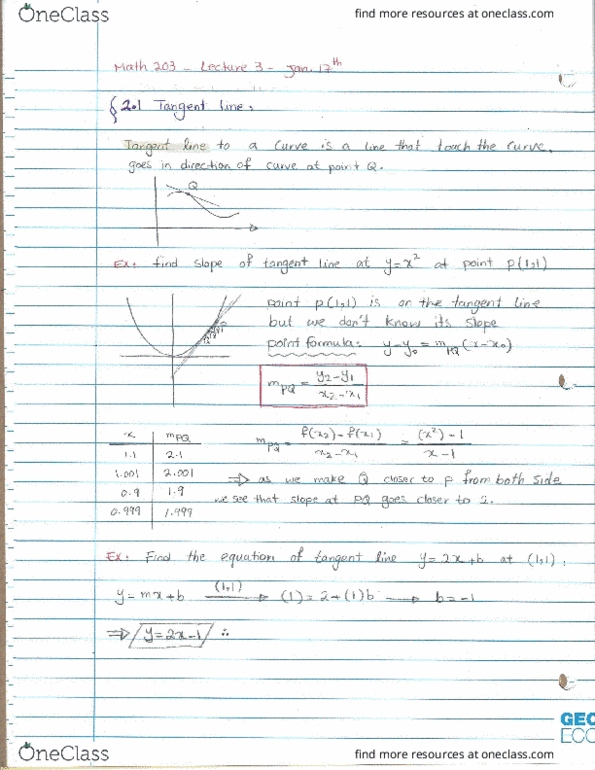 OneClass
find more resources at oneclass.com
Math 203 - Lecture 3 - Jan. 17th
§ 2.1 Tangent line:
Tangent line to a curve is a line that touch the curve,
goes in direction of curve at point Q.
Q
Ex: find slope of tangent line at y=x² at point p(1,1)
point p(1,1) is on the tangent line
but we don't know its slope
point formula: y-y₀ = m_PQ (x-x₀)
m_PQ = (y₂-y₁)/(x₂-x₁)
x | m_PQ
m_PQ = (f(x₂)-f(x₁))/(x₂-x₁) = ((x²)-1)/(x-1)
1.1 | 2.1
1.001 | 2.001
⇒ as we make Q closer to p from both side
0.9 | 1.9
we see that slope at PQ goes closer to 2.
0.999 | 1.999
Ex: Find the equation of tangent line y=2x+b at (1,1):
y=mx+b (1,1) → (1)=2+(1)b → b=-1
⇒ y=2x-1 ∴
GEO
ECO
OneClass
find more resources at oneclass.com